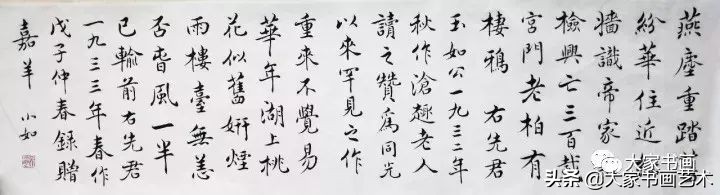 燕塵重踏
紛華住近
牆識帝家
檢興亡三百
宮門老柏有
棲鴉 右先君
玉如公一九三二年
秋作滄趣老人
讀之贊為同光
以來罕見之作
重來不覺易
華年湖上桃
花似舊妍煙
雨樓臺無恙
否旾風一半
已輸前右先君
一九三三年春作
戊子仲春錄贈
嘉羊 小如
大家书画
头条 @大家书画艺术